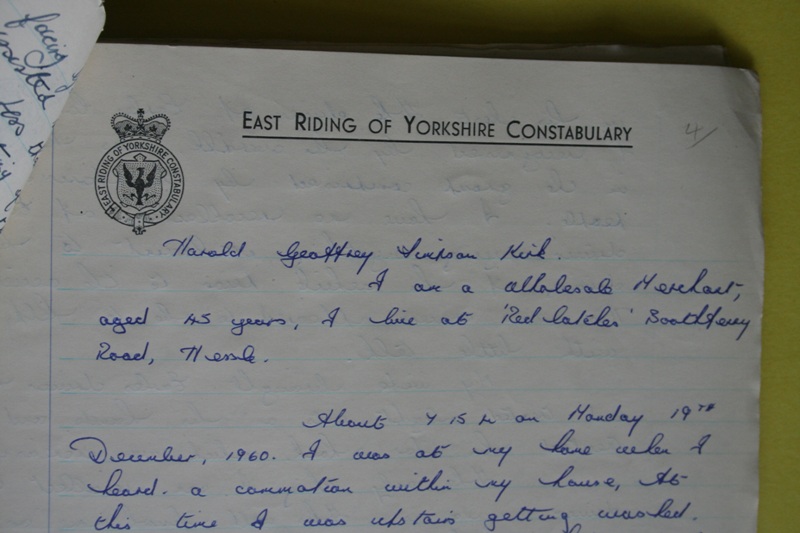 facing
EAST RIDING OF YORKSHIRE CONSTABULARY
4/
EAST RIDING OF YORKSHIRE CONSTABULARY
Harold Geoffrey Simpson Kirk.
I am a Wholesale Merchant,
aged 45 years, I live at 'Red Boothferry
Road, Hessle.
About 7 15 on Monday 19TH
December, 1960. I was at my home when I
heard. a commotion within my house, At
this time I was upstairs getting washed.